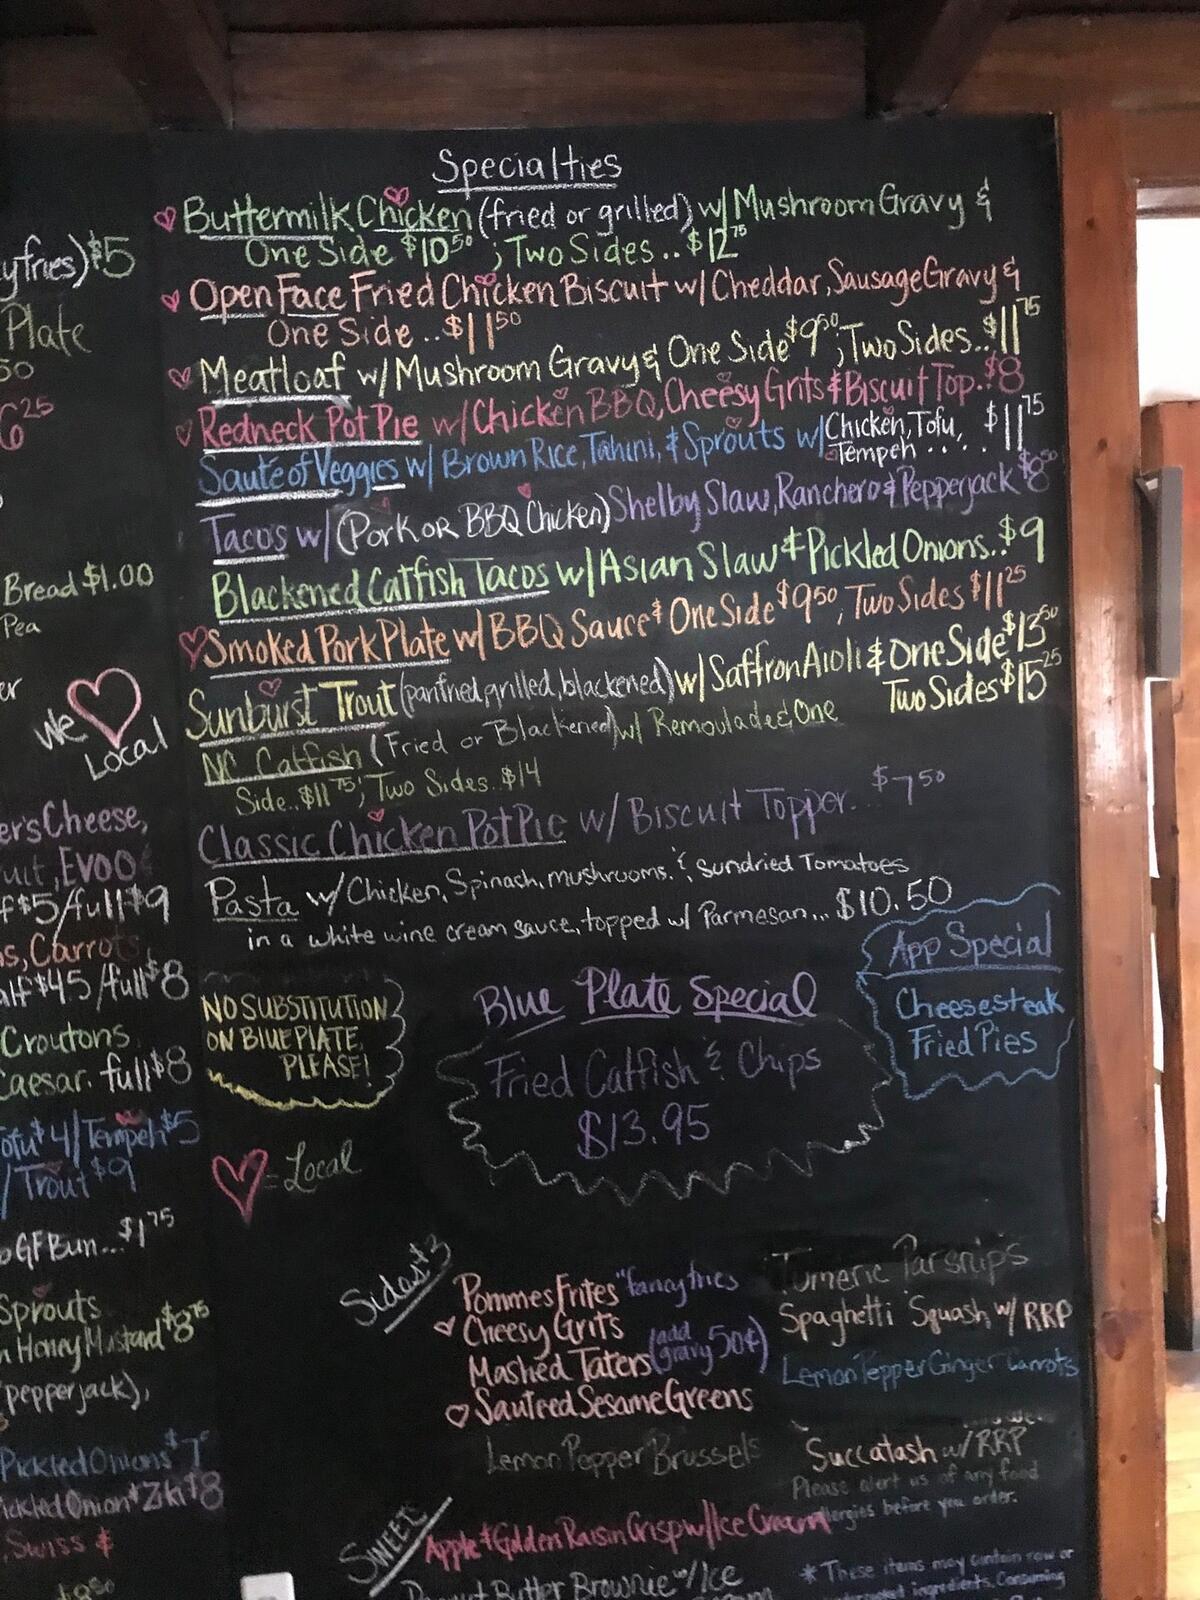 Specialties
Buttermilk Chicken (fried or grilled) w/ Mushroom Gravy &
One Side $10.50 ; Two Sides.. $12.75
Open Face Fried Chicken Biscuit w/ Cheddar, Sausage Gravy &
One Side .. $11.50
Meatloaf w/ Mushroom Gravy & One Side $9.50 ; Two Sides.. $11.75
Redneck Pot Pie w/ Chicken BBQ, Cheesy Grits & Biscuit Top. $8
Sauté of Veggies w/ Brown Rice, Tahini, & Sprouts w/ Chicken, Tofu, Tempeh .... $11.75
Tacos w/ (Pork or BBQ Chicken) Shelby Slaw, Ranchero & Pepperjack $8.50
Blackened Catfish Tacos w/ Asian Slaw & Pickled Onions.. $9
Smoked Pork Plate w/ BBQ Sauce & One Side $9.50 ; Two Sides $11.25
Sunburst Trout (panfried, grilled, blackened) w/ Saffron Aioli & One Side $13.50
Two Sides $15.25
NC Catfish (Fried or Blackened) w/ Remoulade & One
Side.. $11.75 ; Two Sides.. $14
Classic Chicken Pot Pie w/ Biscuit Topper... $7.50
Pasta w/ Chicken, Spinach, mushrooms, & Sundried Tomatoes
in a white wine cream sauce, topped w/ Parmesan... $10.50
App Special
Cheesesteak
Fried Pies
NO SUBSTITUTION
ON BLUE PLATE,
PLEASE!
Blue Plate Special
Fried Catfish & Chips
$13.95
= Local
Sides $3
Pommes Frites "fancy fries
Cheesy Grits
Mashed Taters (add gravy 50¢)
Sauteed Sesame Greens
Lemon Pepper Brussels
Tumeric Parsnips
Spaghetti Squash w/ RRP
Lemon Pepper Ginger Carrots
Succatash w/ RRP
Please alert us of any food
allergies before you order.
SWEETS
Apple & Golden Raisin Crisp w/ Ice Cream
Peanut Butter Brownie w/ Ice
* These items may contain raw or
ingredients. Consuming
yfries) $5
Plate
50
6.25
Bread $1.00
Pea
er
We
Local
er's Cheese,
uit, EVOO
f $5/full $9
s, Carrots
alf $4.5/full $8
Croutons
Caesar. full $8
ofu $4/Tempeh $5
/Trout $9
GF Bun... $1.75
Sprouts
n Honey Mustard $8.75
(pepperjack),
Pickled Onions $7
ickled Onion & Ziki $8
, Swiss &